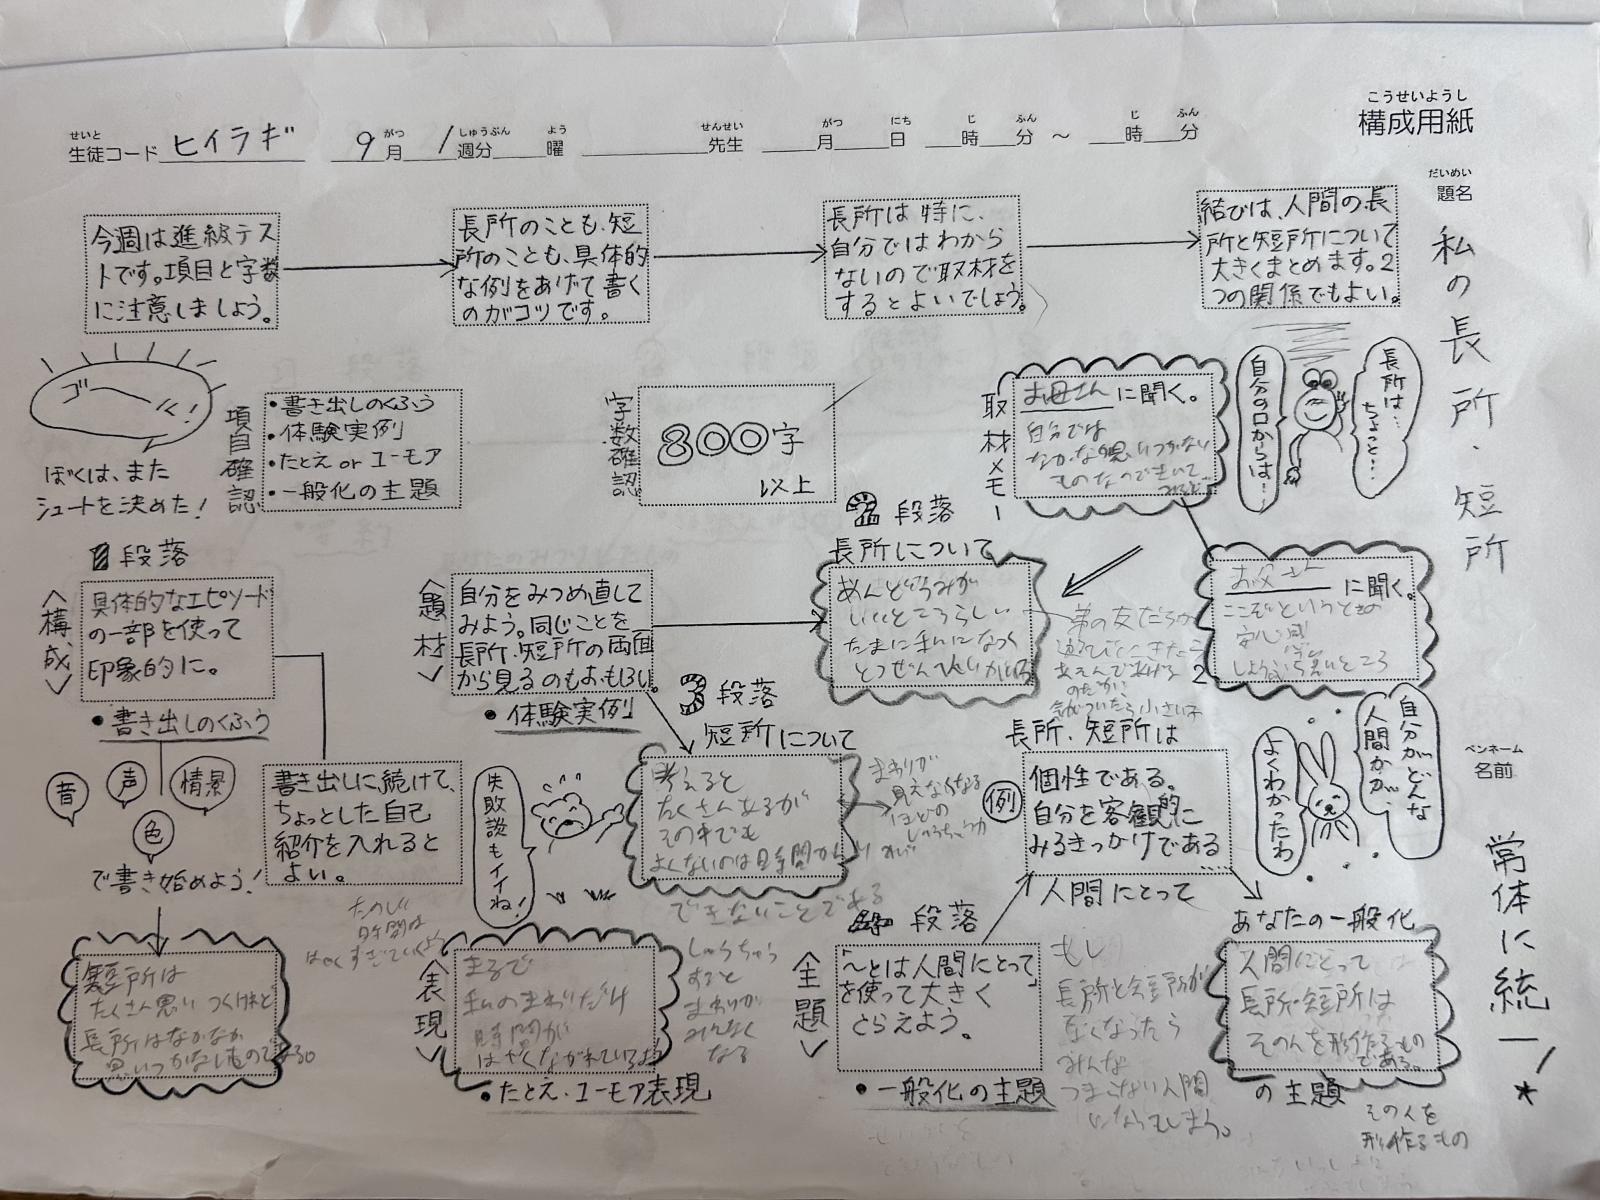 こうせいようし
構成用紙
せいと
生徒コード ヒイラギ 9月 1週分 曜 先生 月 日 時 分 ~ 時 分
がつ しゅうぶん よう せんせい がつ にち じ ふん じ ふん
だいめい
題名
私の長所・短所
ペンネーム
名前
常体に統一!
今週は進級テス
トです。項目と字数
に注意しましょう。
長所のことも、短
所のことも、具体的
な例をあげて書く
のがコツです。
長所は特に、
自分ではわから
ないので取材を
するとよいでしょう。
結びは、人間の長
所と短所について
大きくまとめます。2
つの関係でもよい。
ゴーール!
ぼくは、また
シュートを決めた!
項目確認
・書き出しのくふう
・体験実例
・たとえ or ユーモア
・一般化の主題
字数確認
800字
以上
取材メモー
お母さんに聞く。
自分では
なかなか思いつかない
ものなので きいて
自分の口からは…
長所は…
ちょっと…
お父さんに聞く。
ここぞというときの
安心感
1段落
<構成>
具体的なエピソード
の一部を使って
印象的に。
・書き出しのくふう
音
声
情景
色
で書き始めよう!
書き出しに続けて、
ちょっとした自己
紹介を入れると
よい。
たのしい
時間は
はやくすぎていくよ
短所は
たくさん思いつくけれど
長所はなかなか
思いつかないものである。
<題材>
自分をみつめ直して
みよう。同じことを
長所、短所の両面
から見るのもおもしろい。
・体験実例
2段落
長所について
いいところらしい
3段落
短所について
考えると
たくさんあるが
その中でも
よくないのは時間
できないことである
まわりが
見えなくなる
ほどの
しゅうちゅう力
失敗談もイイね!
<表現>
まるで
私のまわりだけ
時間が
はやくながれているよう
・たとえ・ユーモア表現
しゅうちゅう
すると
まわりが
みえなく
なる
長所、短所は
例
個性である。
自分を客観的に
みるきっかけである
…
人間にとって
段落
<主題>
「~とは人間にとって」
を使って大きく
とらえよう。
・一般化の主題
もし
長所と短所が
なくなったら
みんな
つまらない人間
になってしまう。
自分がどんな
人間かが、
よくわかったわ
あなたの一般化
人間にとって
長所・短所は
その人を形作るもの
である。
の主題
その人を
形作るもの